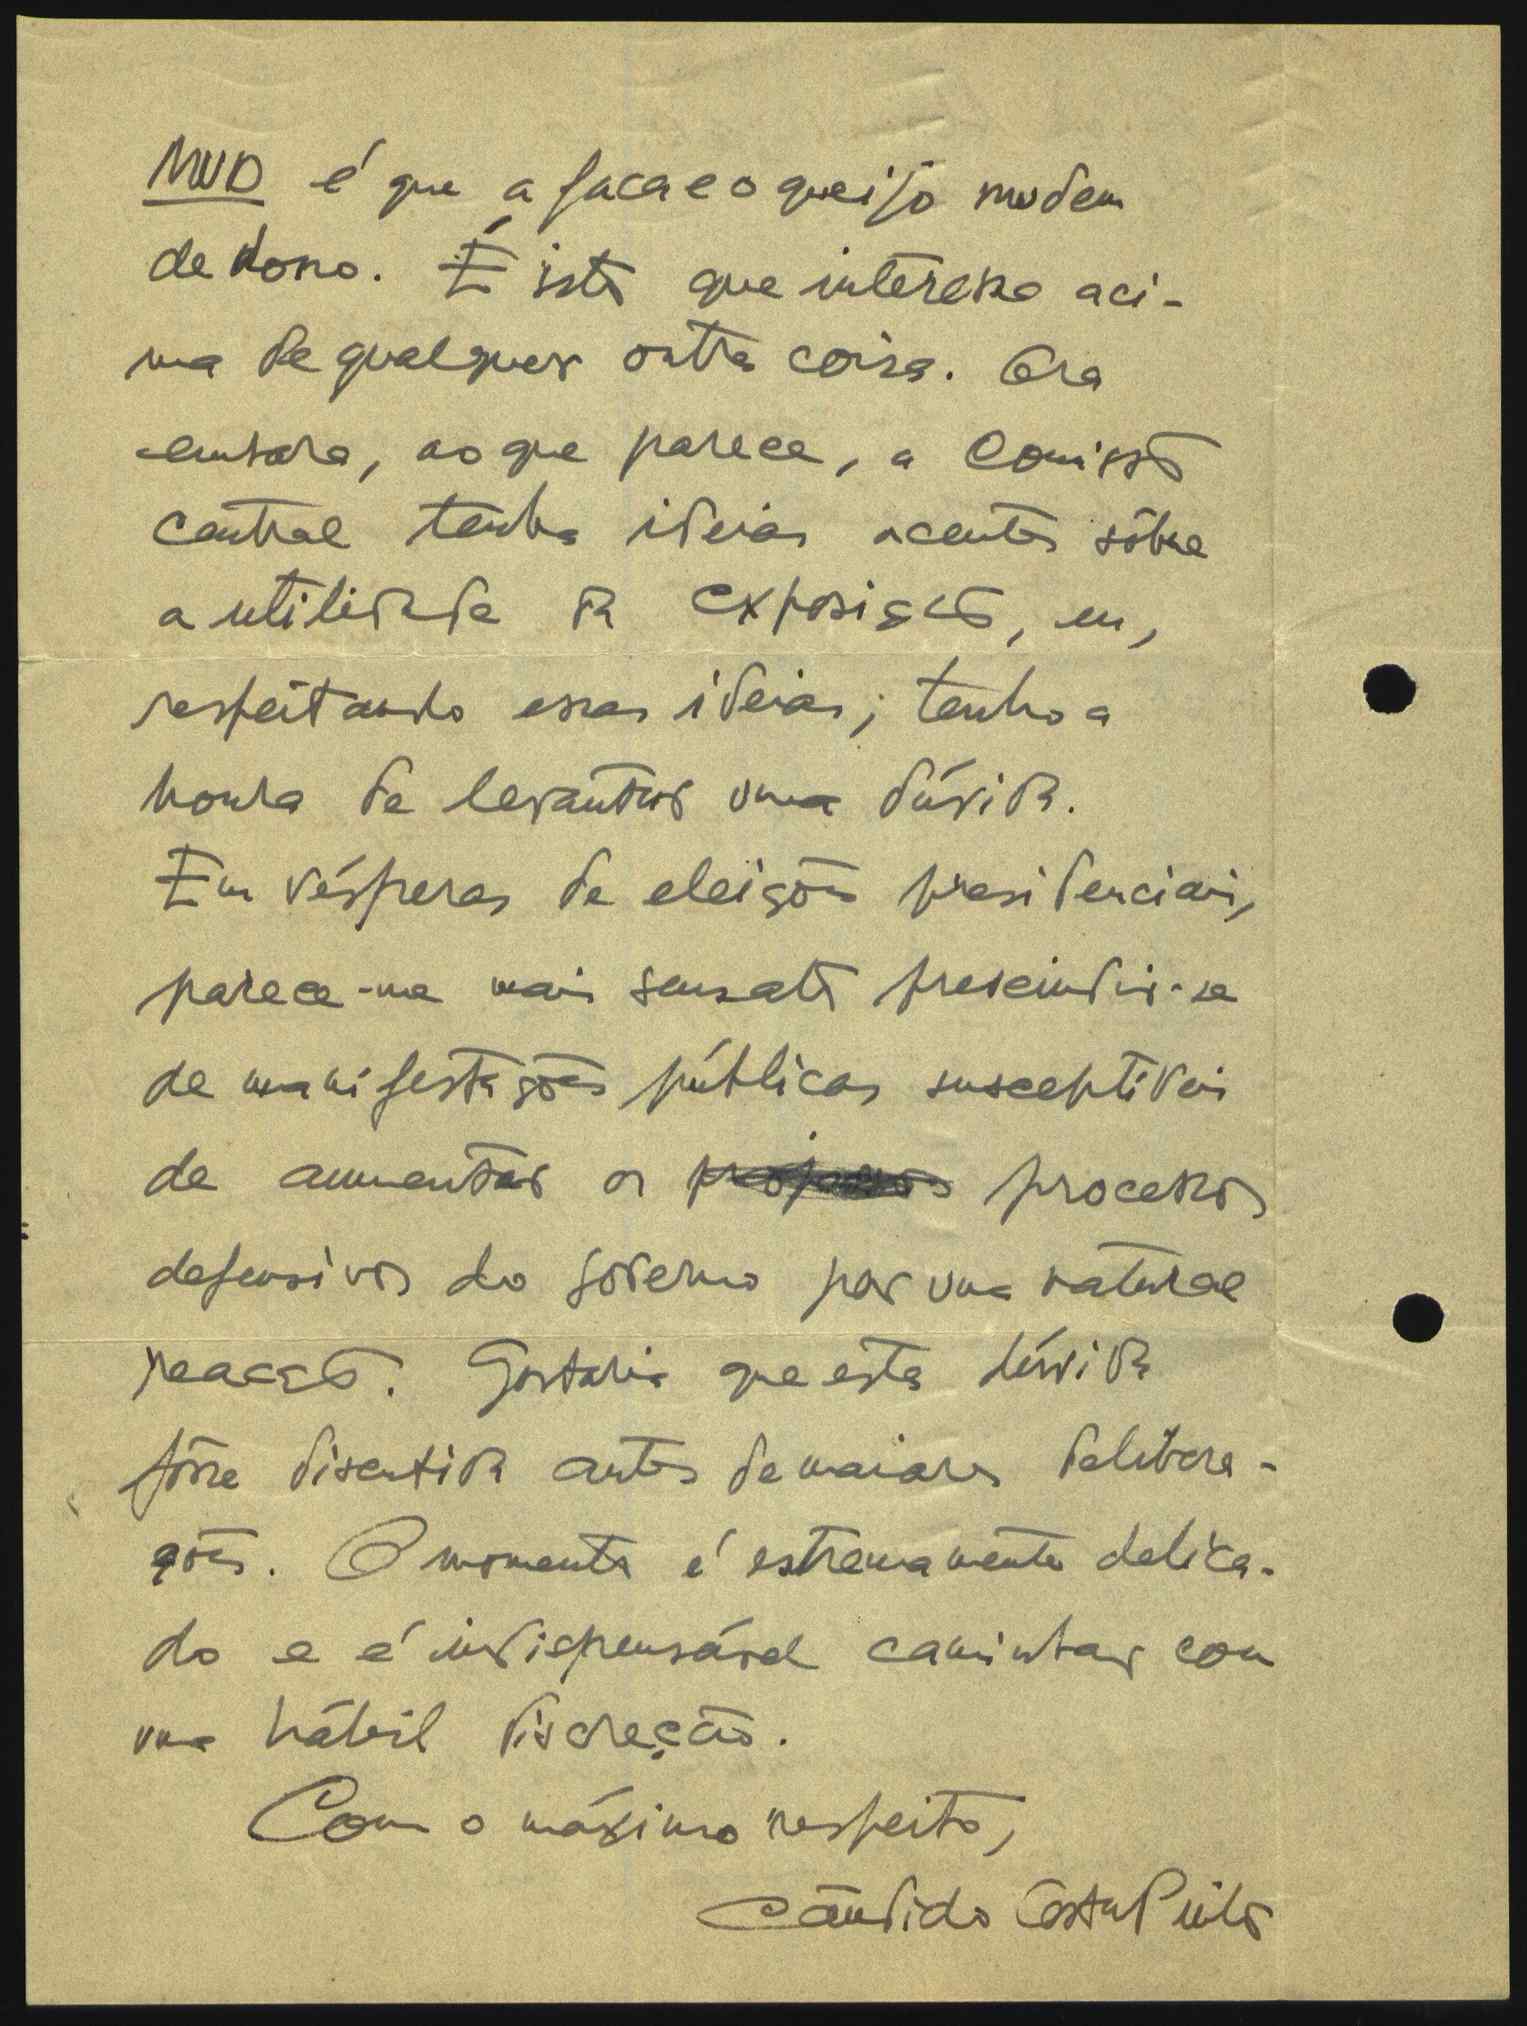 MUD é que a faca e o queijo mudem
de dono. É isto que interessa aci-
ma de qualquer outra coisa. Ora
embora, ao que parece, a Comissão
central tenha ideias acentes sôbre
a utilidade da exposição, eu,
respeitando essas ideias, tenho a
honra de levantar uma dúvida.
Em vésperas de eleições presidenciais,
parece-me mais sensato prescindir-se
de manifestações públicas susceptíveis
de aumentar os processos
defensivos do governo por uma natural
reacção. Gostaria que esta dúvida
fôsse discutida antes de maiores delibera-
ções. O momento é estremamente delica-
do e é indispensável caminhar com
uma hábil discreção.
Com o máximo respeito,
Cândido Costa Pinto